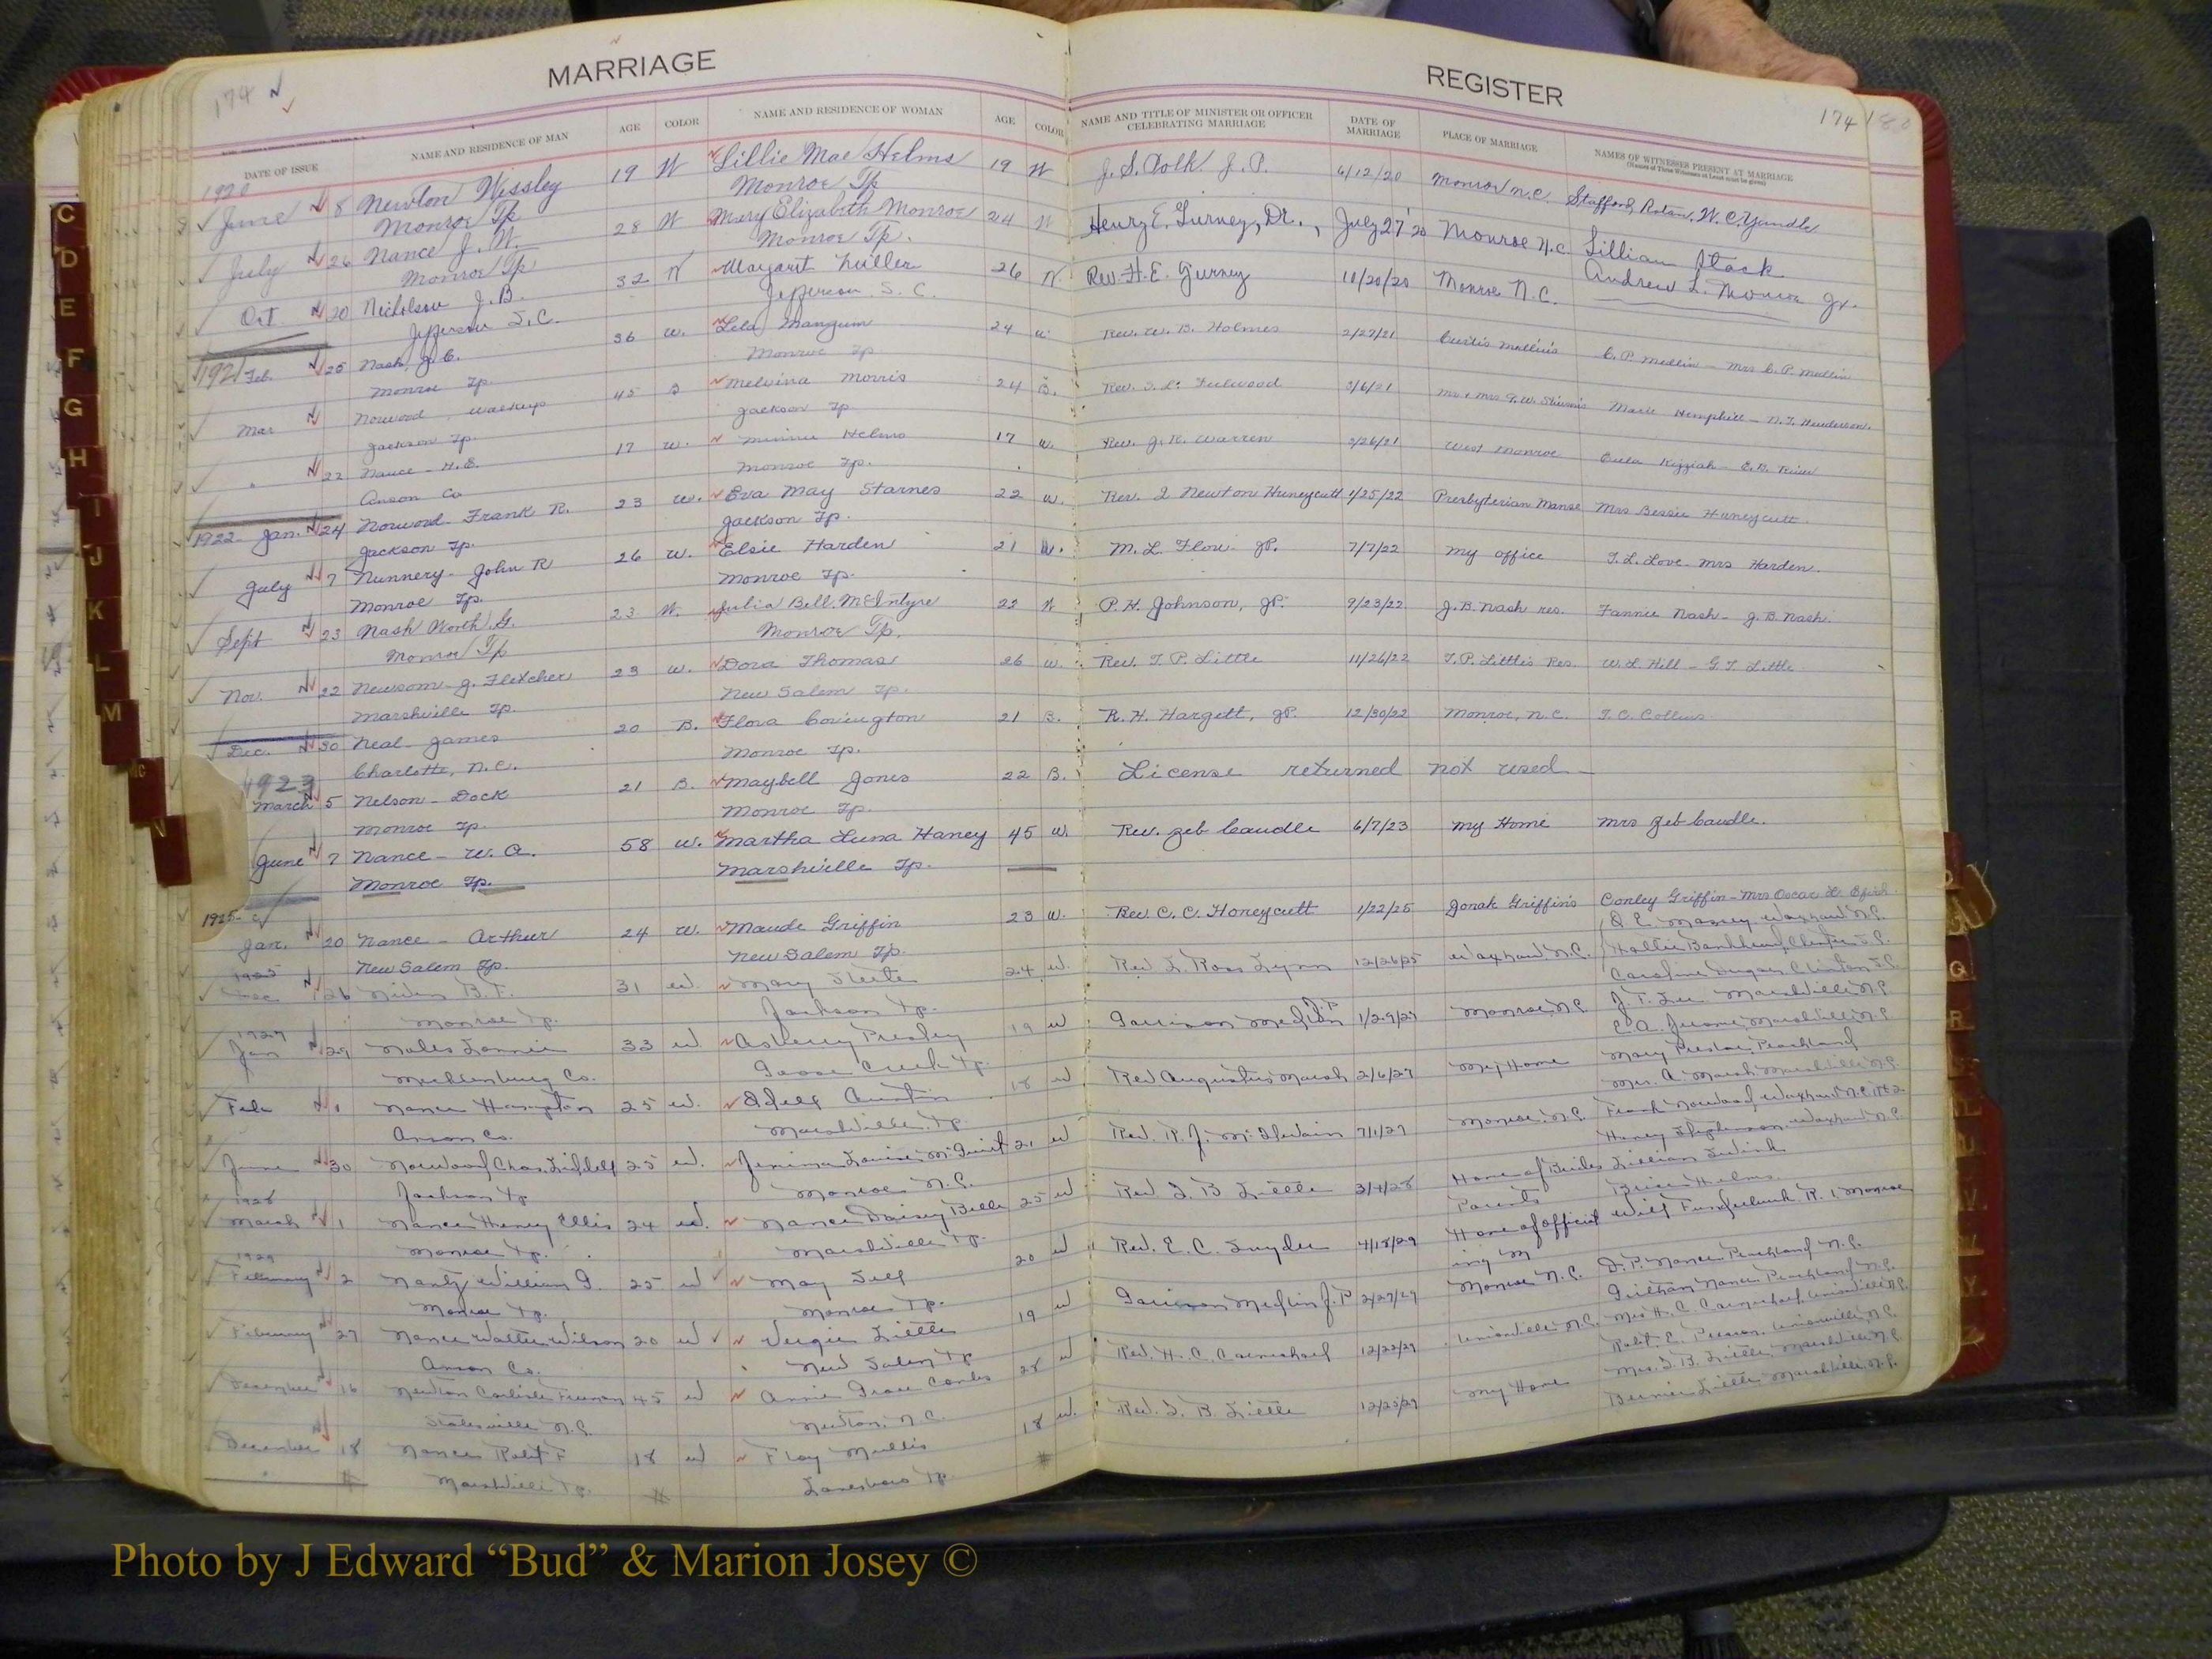 MARRIAGE
REGISTER
174
174
DATE OF ISSUE
NAME AND RESIDENCE OF MAN
AGE
COLOR
NAME AND RESIDENCE OF WOMAN
AGE
COLOR
NAME AND TITLE OF MINISTER OR OFFICER CELEBRATING MARRIAGE
DATE OF MARRIAGE
PLACE OF MARRIAGE
NAMES OF WITNESSES PRESENT AT MARRIAGE
1920
June 8 Newton Wessley 19 W Lillie Mae Helms 19 W J. S. Polk J. P. 6/12/20 Monroe N.C. W. C. Yandle
Monroe Tp Monroe Tp
July 26 Nance J. W. 28 W Mary Elizabeth Monroe 24 W Henry E. Gurney, Dr., July 27'20 Monroe N.C. Lillian Stack
Monroe Tp Monroe Tp. Andrew L. Monroe Jr.
Oct 20 Nicholson J. B. 32 W Margaret Miller 26 W. Rev. H. E. Gurney 10/20/20 Monroe N.C.
Jefferson S.C. Jefferson S. C.
1921 Feb. 25 Nash, J. C. 36 w. Lela Mangum 24 w Rev. W. B. Holmes 2/27/21 C. P. Medlin - Mrs C. P. Medlin
Monroe Tp. Monroe Tp
Mar Norwood, 45 B Melvina Morris 24 B. 3/6/21 Marie Hemphill - N. T. Henderson.
Jackson Tp. Jackson Tp
" 22 Nance - H. E. 17 w. Minnie Helms 17 w. Rev. J. R. Warren 3/26/21 West Monroe
Anson Co Monroe Tp.
1922 Jan. 24 Norwood - Frank R. 23 w. Eva May Starnes 22 w. Rev. I Newton Huneycutt 1/25/22 Presbyterian Manse Mrs Bessie Huneycutt
Jackson Tp. Jackson Tp.
July 7 Nunnery - John R 26 w. Elsie Harden 21 w. M. L. Flow - JP. 7/7/22 my office T. L. Love - Mrs Harden.
Monroe Tp. Monroe Tp.
Sept 23 Nash Worth G. 23 W. Julia Bell McIntyre 22 W P. H. Johnson, JP. 9/23/22 J. B. Nash res. Fannie Nash - J. B. Nash.
Monroe Tp Monroe Tp.
Nov. 22 Newsom - J. Fletcher 23 w. Dora Thomas 26 w. Rev. T. P. Little 11/26/22 T. P. Little's Res. W. L Hill - G T. Little
Marshville Tp. New Salem Tp.
Dec. 30 Neal - James 20 B. Flora Covington 21 B. R. H. Hargett, JP. 12/30/22 Monroe, N. C. T. C. Collins
Charlotte, N. C. Monroe Tp.
1923
March 5 Nelson - Dock 21 B. Maybell Jones 22 B. License returned not used -
Monroe Tp. Monroe Tp.
June 7 Nance - W. A. 58 w. Martha Luna Haney 45 w. Rev. Zeb Caudle 6/7/23 my Home Mrs Zeb Caudle.
Monroe Tp. Marshville Tp.
1925
Jan. 20 Nance - Arthur 24 w. Maude Griffin 23 w. Rev. C. C. Honeycutt 1/22/25 Jonah Griffin's Conley Griffin - Mrs Oscar L.
New Salem Tp. New Salem Tp.
1925
Dec 26 Niven B. F. 31 w. Mary Steele 24 w. Rev L. Ross Lynn 12/26/25 Waxhaw N.C.
Monroe Tp. Jackson Tp.
1927
Jan 29 Nales Lonnie 33 w Asberry Presley 19 w Garrison Medlin J.P. 1/29/27 Monroe, N.C. J. T. Lee Marshville N.C.
Mecklenburg Co. Goose Creek Tp. E. A. Jerome, Marshville N.C.
Feb 1 Nance Hampton 25 w. Odell Austin 18 w Rev Augustus Marsh 2/6/27 My Home Mrs. A. Marsh, Marshville N.C.
Anson Co. Marshville Tp.
June 30 Norwood Chas. Liddell 25 w. Jemima Louise 21 w Rev. R. J. McIlwain 7/1/27 Monroe, N.C. Frank Norwood, Waxhaw N.C. Rt 2
Jackson Tp Monroe N.C. Stephenson Waxhaw N.C.
1928
March 1 Nance Henry Ellis 24 w. Nance Daisy Belle 25 w Rev. T. B Little 3/4/28 Home of Brides Parents
Monroe Tp. Marshville Tp. Brice Helms
1929
February 2 Nantz William G. 25 w May Self 20 w Rev. E. C. Snyder 4/18/29 Home of officiating M R. 1, Monroe
Monroe Tp. Monroe Tp.
February 27 Nance Walter Wilson 20 w Vergie Little 19 w Garrison Medlin J.P 2/27/29 Monroe N.C. D. P. Nance Peachland N.C.
Anson Co. New Salem Tp Nance Peachland N.C.
December 16 Newton Carlisle Freeman 45 w Annie Grace Combs 28 w Rev. H. C. Carmichael 12/22/29 Unionville N.C. Mrs H. C. Carmichael Unionville N.C.
Statesville N.C. Newton, N.C. Unionville, N.C.
December 18 Nance Robt F 18 w Floy Mullis 18 w. Rev. T. B. Little 12/25/29 My Home Mrs. T. B. Little Marshville N.C.
Marshville Tp. Lanesboro Tp Little Marshville, N.C.
C
D
E
F
G
H
I
J
K
L
M
MC
N
Q
R
V
Y
Photo by J Edward “Bud” & Marion Josey ©